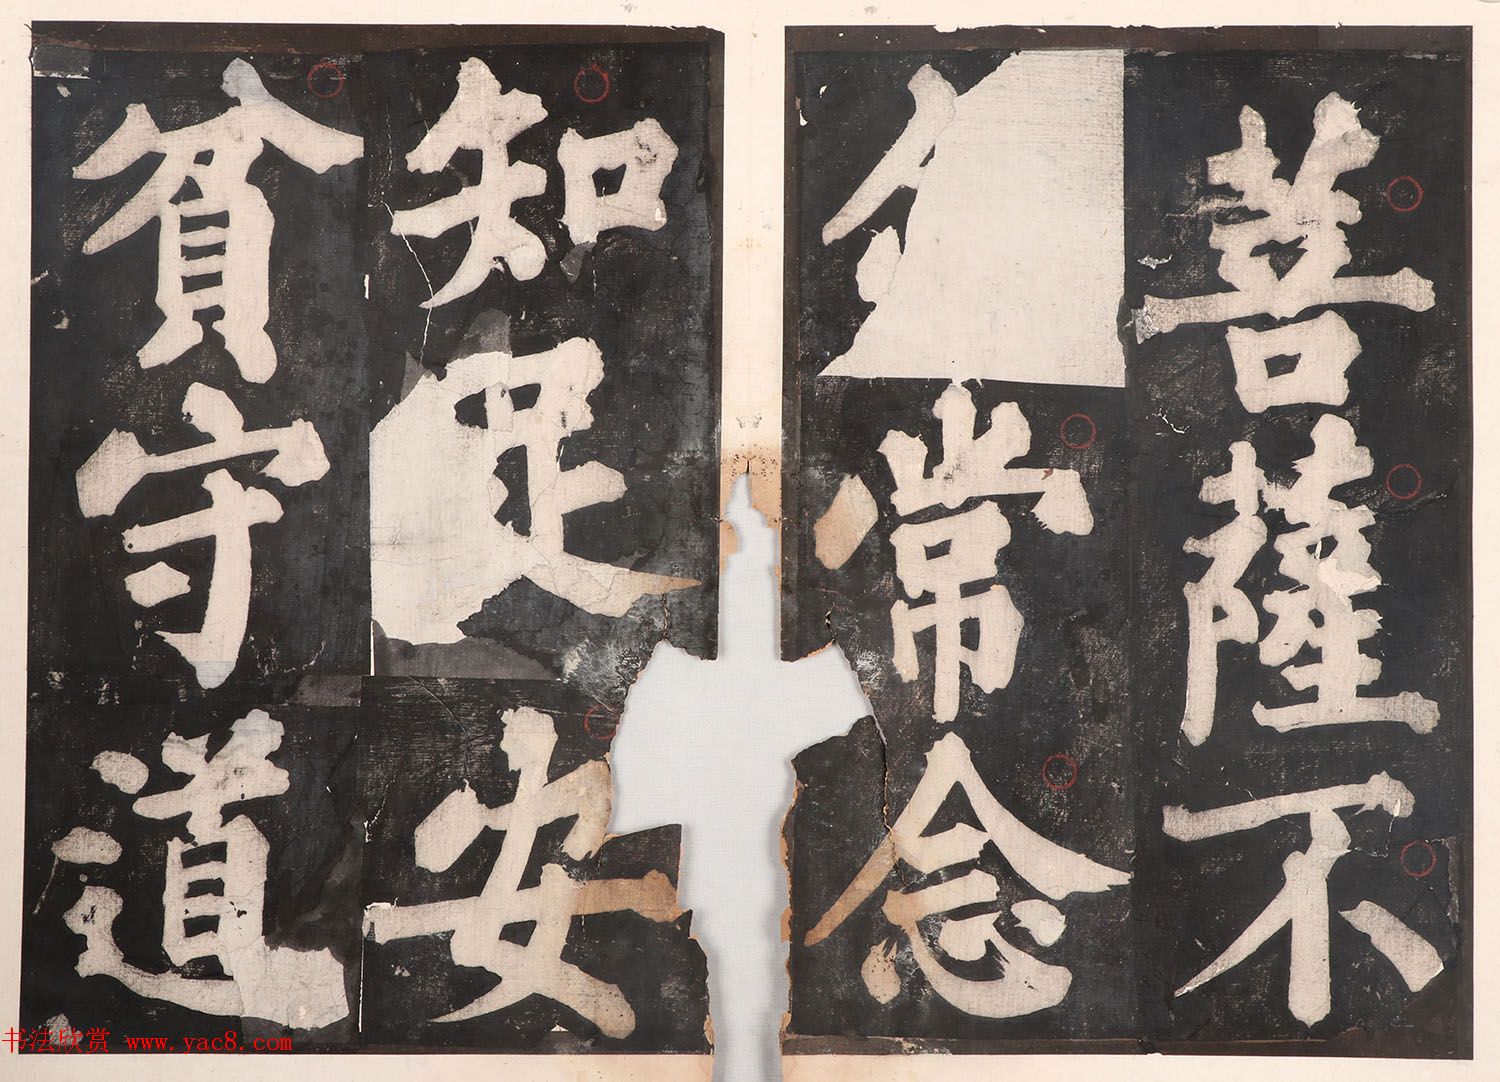 菩薩不
常念
知足安
貧守道
书法欣赏 www.yac8.com